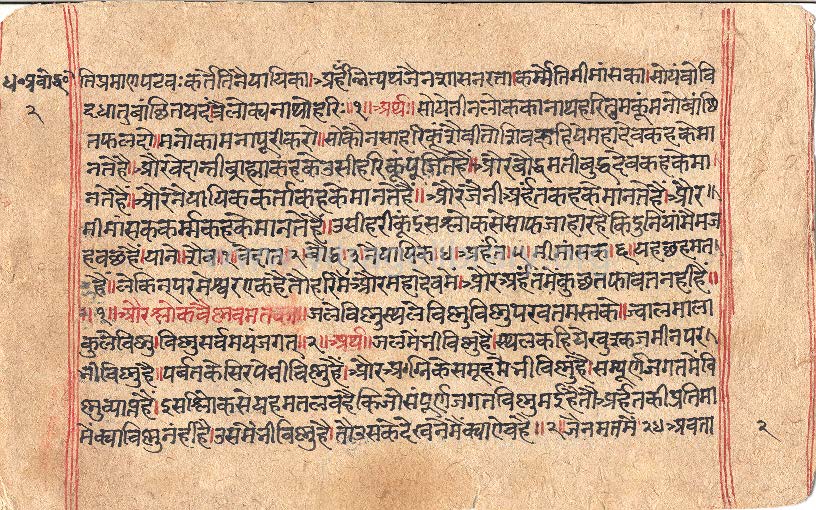 ध॰प्रबोध॰
२
तिप्रमाणपटवः कर्तेतिनैयायिका।अर्हन्नित्यथजैनशासनरता।कर्म्मेतिमीमांसका।सोयंवोवि
दधातुवांछितफलंत्रैलोक्यनाथोहरिः॥१॥अर्थ॥सोयेतीनलोककानाथहरितुमकूंमनोवांछि
तफलदो।मनोकामनापूरीकरो।सोकौनसाहरिकूंशैवीतोशिवकहियेमहादेवकहकेमा
नतेहै।औरवेदान्तीब्राह्मकहकेउसीहरिकूपूजितेहैं।औरबौद्धमतीबुद्धदेवकहकेमा
नतेहैं।औरनैयायिककर्त्ताकहकेमानतेहैं॥औरजैनीअर्हतकहकेमानतेहै।और॥
मीमांसककर्मकहकेमानतेहैं।उसीहरीकूंइसश्लोकसेसाफजाहीरहैकिदुनियांमेमज
हबछहैं।याने।शैव१।वेदान्त२बौद्ध३नैयायिक४।अर्हत५।मीमांसक।६।यहछहमत।
हैं।लेकिनपरमेश्वरएकहैतौहरिमेंऔरमहादेवमें।औरअर्हतमेंकुछतफावतनहींहैं॥
॥१॥औरश्लोकवैष्णवमतका॥जलेविष्णुस्थलेविष्णुविष्णुपरवतमस्तके॥ज्वालमाला
कुलेविष्णु।विष्णुसर्वमयंजगत॥२॥अर्थ॥जलमेंनीविष्णुहैं।स्थलकहियेखुश्कजमीनपर।
नीविष्णुहैं॥पर्वतकेसिरपेनीविष्णुहैं।औरअग्निकेसमूहमेंनीविष्णुहैं।सम्पूर्णजगतमेंवि
ष्णुव्याप्तहैं।इसश्लोकसेयहमतलबहैकिजोसंपूर्णजगतविष्णुमईहैतौ।अर्हतकीप्रतिमा
मेंक्याविष्णुनंहींहै।उसमेंनीविष्णुहै।तौउसकेदेखनेमेंक्याऐबहै॥२॥जैनमतमें२४अवता
२